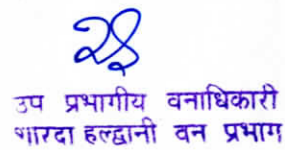 उप प्रभागीय वनाधिकारी
शारदा हल्द्वानी वन प्रभाग